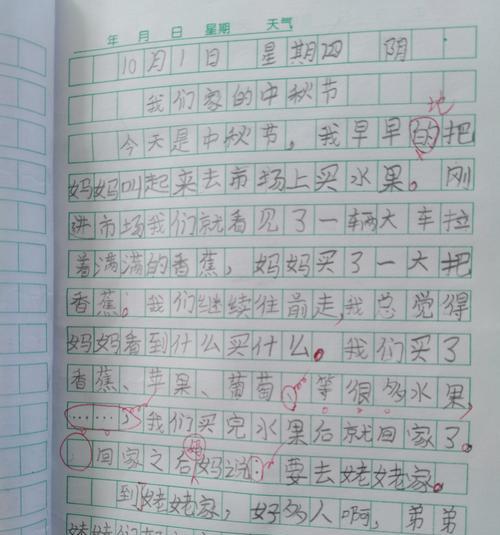 年 月 日 星期 天气
10月1日 星期四 阴
我们家的中秋节
地
今天是中秋节，我早早的把
妈妈叫起来去市场上买水果。刚
进市场我们就看见了一辆大车拉
着满满的香蕉，妈妈买了一大把
香蕉。我们继续往前走，我总觉得
妈妈看到什么买什么。我们买了
香蕉、苹果、葡萄、等很多水果，
……，我们买完水果后就回家了。
妈
回家之后妈说：要去姥姥家。
到姥姥家，好多人啊，弟弟
妹妹们都